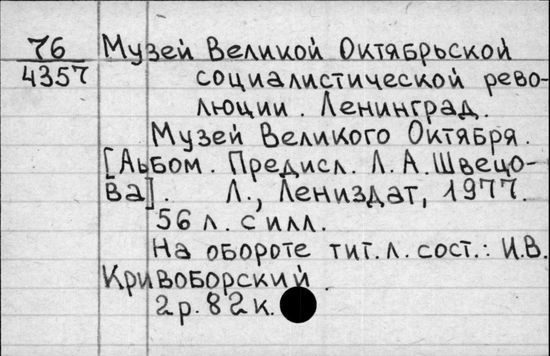 76 Музей Великой Октябрьской
4357 социалистической рево-
люции. Ленинград.
Музей Великого Октября.
[Альбом. Предисл. Л. А. Швецо-
ва]. Л., Лениздат, 1977.
56 л. с илл.
На обороте тит. л. сост.: И.В.
Кривоборский.
2 р. 82 к.